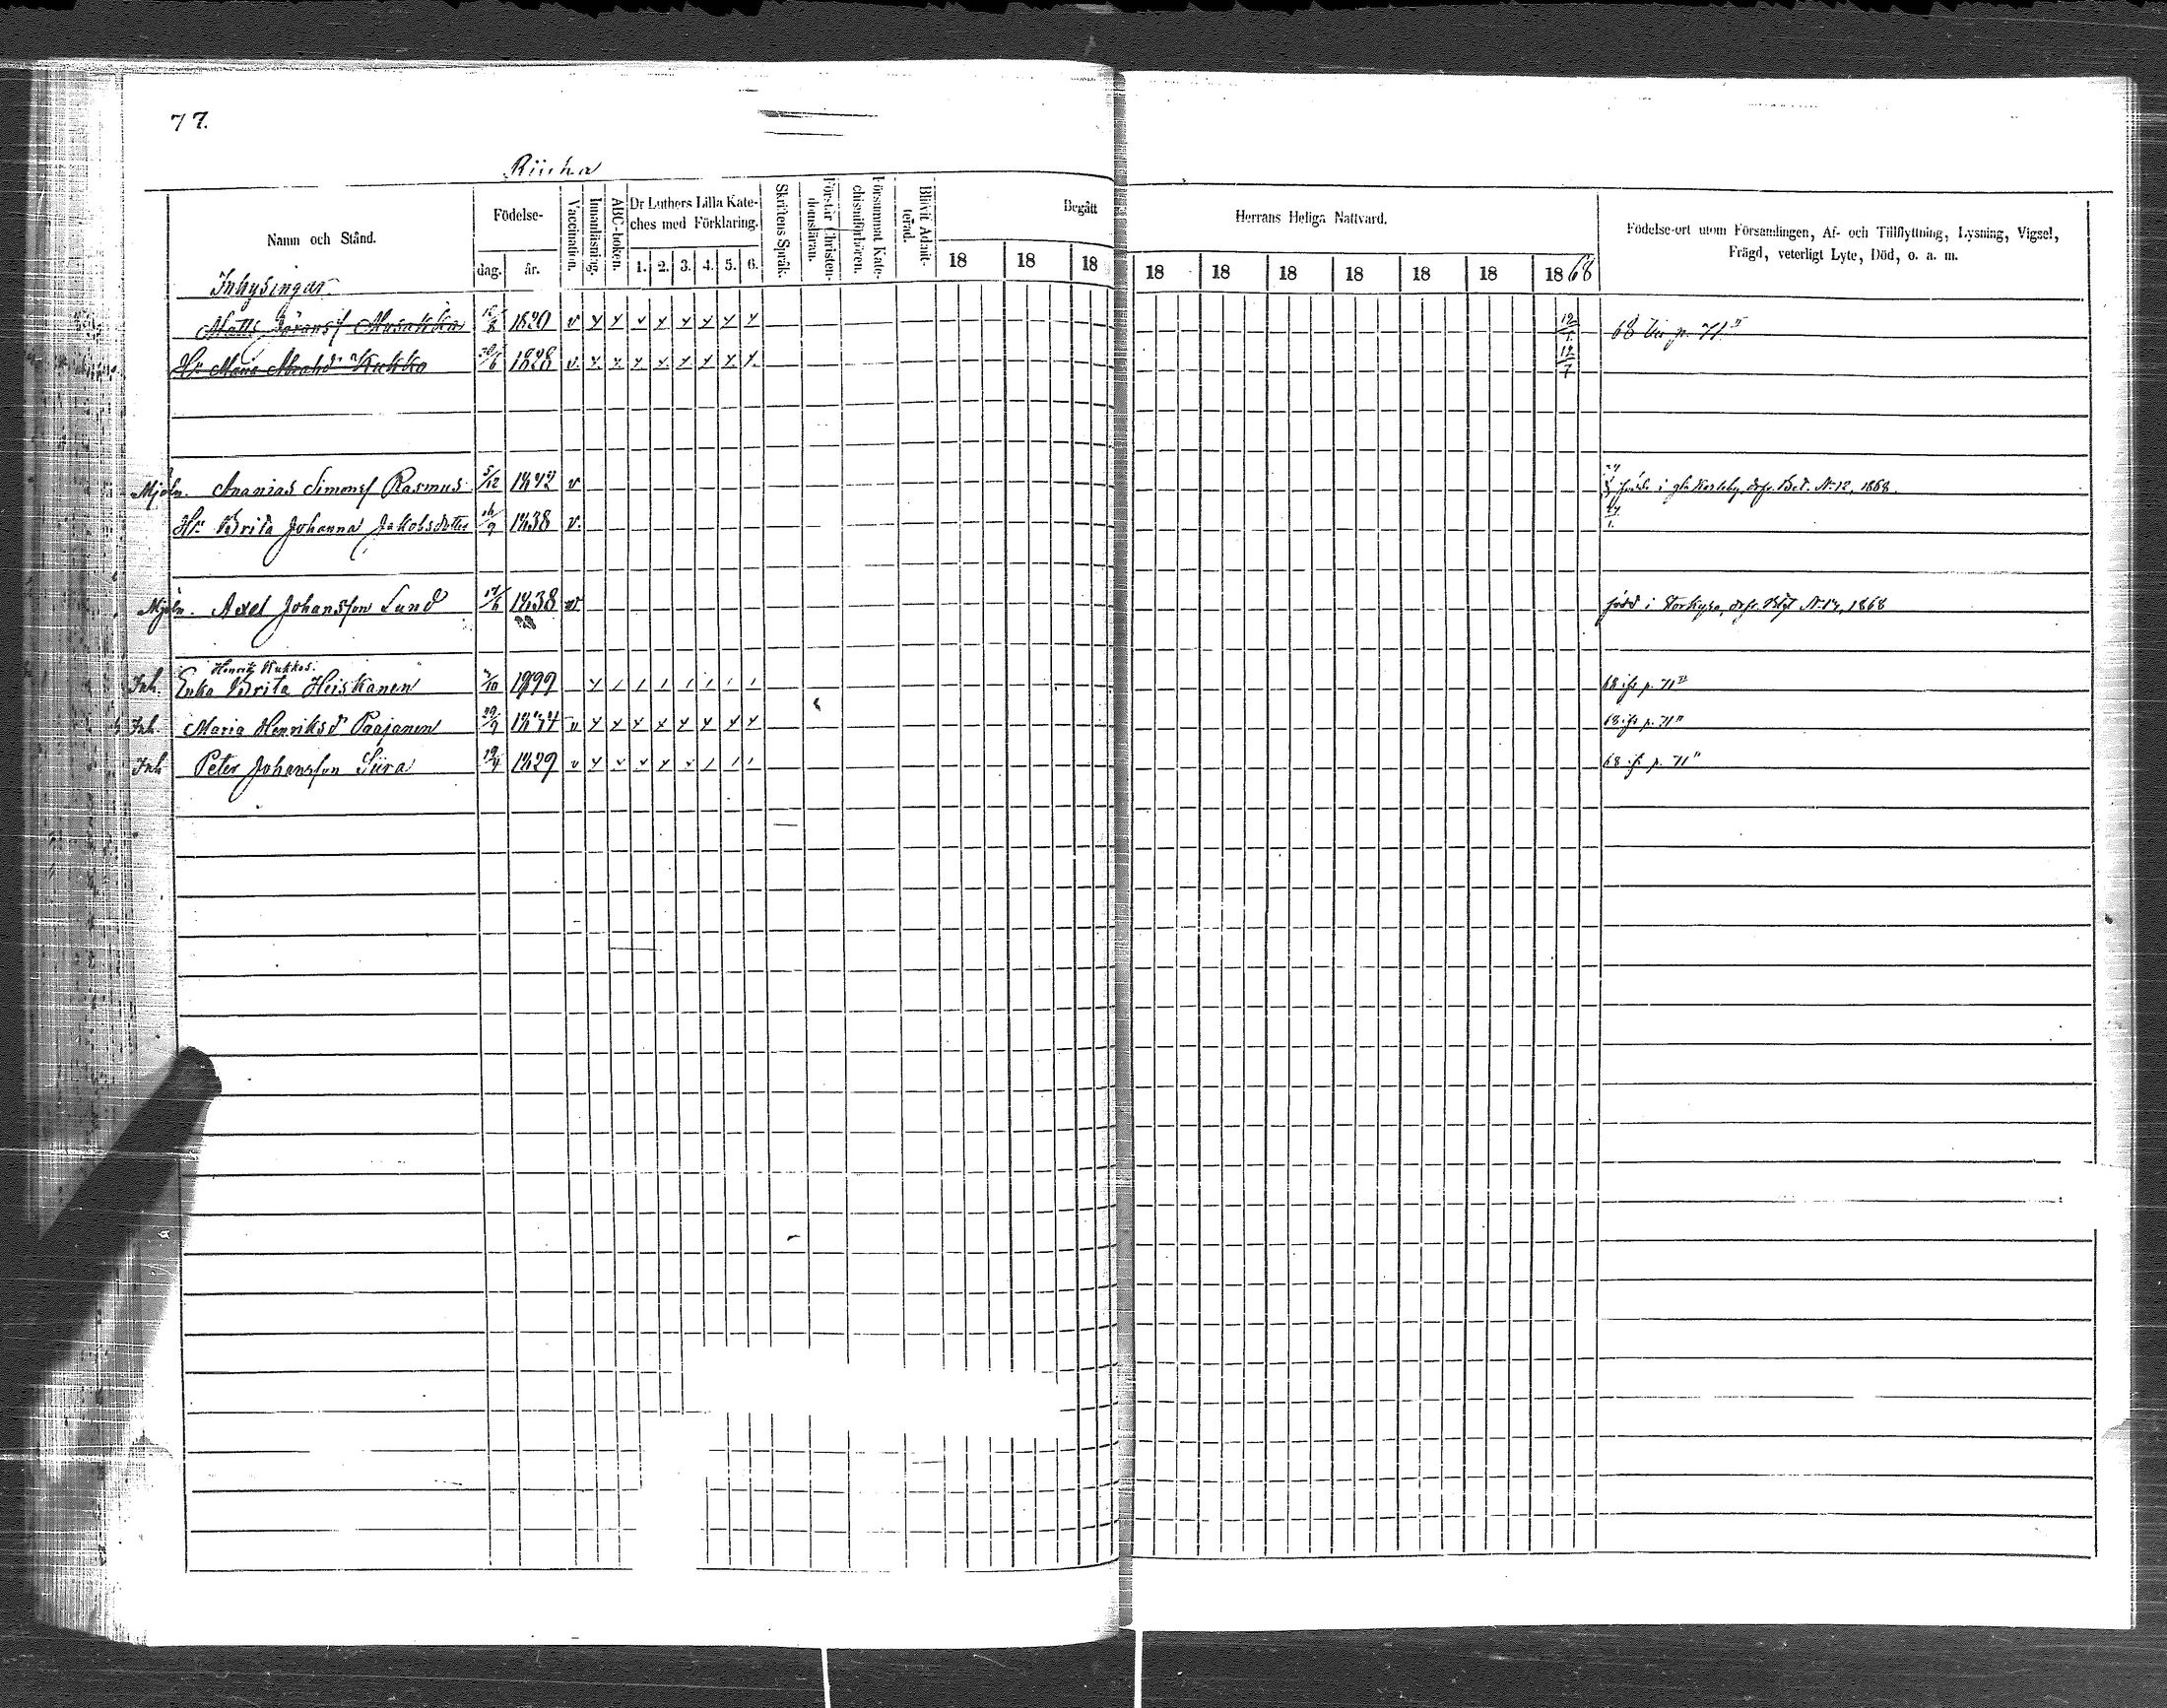 77.
Riuha
Namn och Stånd.
Födelse-
dag. år.
Vaccination.
Innanläsning.
ABC-boken.
Dr Luthers Lilla Kate-
ches med Förklaring.
1. 2. 3. 4. 5. 6.
Skriftens Språk.
Förstår Christen-
domsläran.
Försummat Kate-
chismiförhören.
Blifvit Admit-
terad.
Begått
18 18 18
Herrans Heliga Nattvard.
18 18 18 18 18 18 1868
Födelse-ort utom Församlingen, Af- och Tillflyttning, Lysning, Vigsel,
Frägd, veterligt Lyte, Död, o. a. m.
Inhysingar
Matts Göransf Musakka 1820 v x x x x x x x x 12/7 68 p. 71
Hu Maria Abrahd Kukko 1828 v. x. x. x x. x x x. x. 12/7
Mjöln. Ananias Simonsf Rasmus 5/12 1842 v i gla Karleby, Bet. No 12, 1868.
Hu Brita Johanna Jakobsdotter 16/9 1838 v.
Mjöln. Axel Johansson Lund 1838 v född i Storkyro, 1868
Henrik Kukkos.
Inh. Enka Brita Heiskanen 1799 68 ifr p. 71
Inh. Maria Henriksdr Paajanen 29/9 v x x x x x x x x 68 ifr p. 71
Inh Peter Johansson Siira 1829 68 ifr p. 71